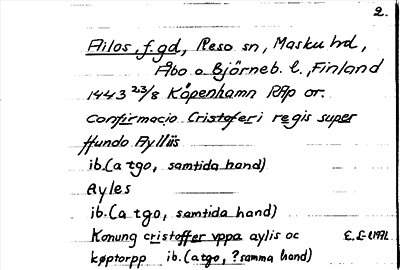 2.
Ailos, f.gd, Reso sn, Masku hd,
Åbo o. Björneb. l., Finland
1443 23/8 Köpenhamn RAp or.
Confirmacio Cristoferi regis super
ffundo Aylliis
ib. (a tgo, samtida hand)
Ayles
ib. (a tgo, samtida hand)
Konung cristoffer vppa aylis oc
køptorpp ib. (atgo, ?samma hand)